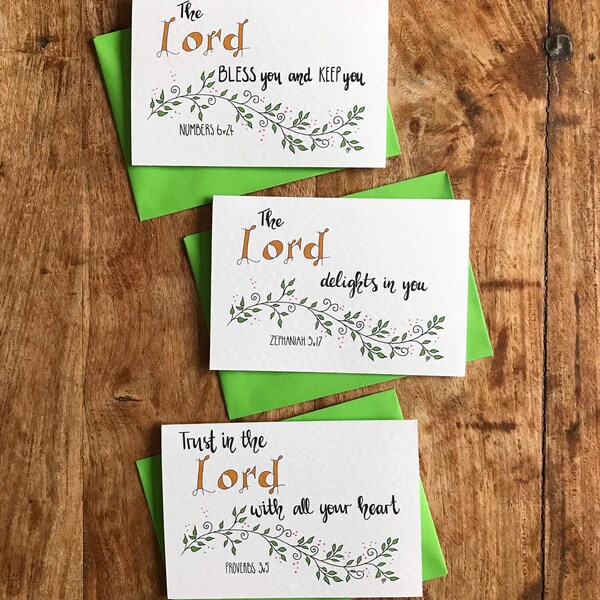 The
Lord
BLESS you and KEEP you
NUMBERS 6:24
The
Lord
delights in you
ZEPHANIAH 3:17
Trust in the
Lord
with all your heart
PROVERBS 3:5